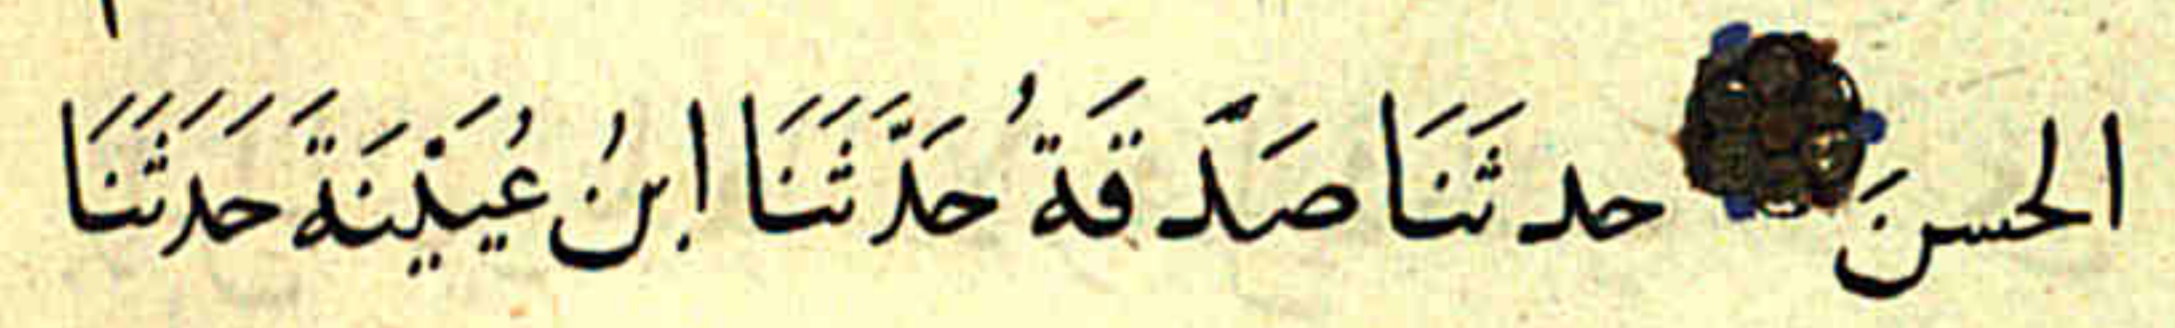 الحسنَ حدثَنَا صَدَّقَةُ حَدَّثَنَا ابنُ عُيَيْنَةَ حَدَثَنَا